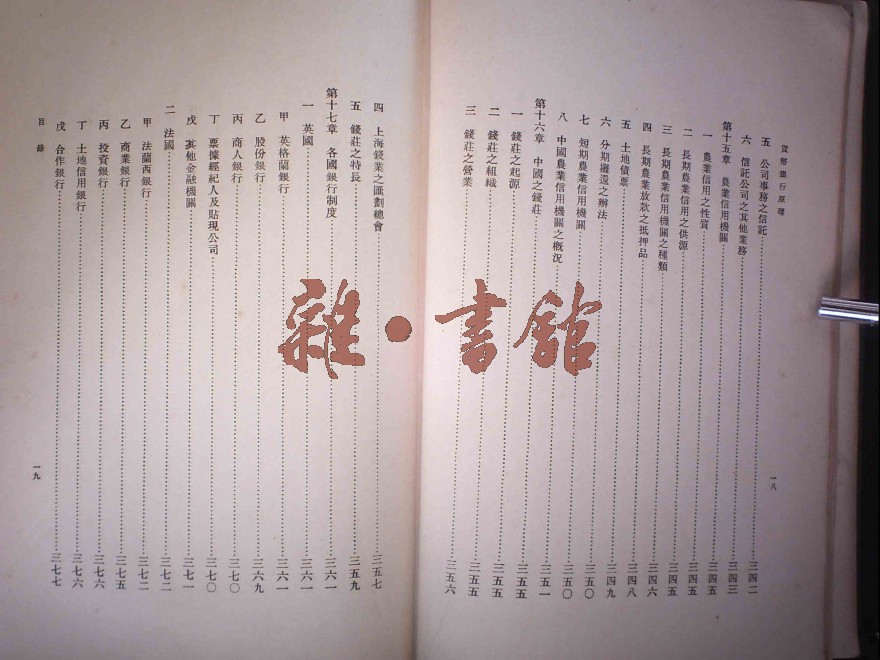 貨幣銀行原理
五 公司事務之信託……三四二
六 信託公司之其他業務……三四三
第十五章 農業信用機關……三四五
一 農業信用之性質……三四五
二 長期農業信用之供源……三四五
三 長期農業信用機關之種類……三四五
四 長期農業放款之抵押品……三四六
五 土地債票……三四八
六 分期攤還之辦法……三四九
七 短期農業信用機關……三五〇
八 中國農業信用機關之概況……三五〇
第十六章 中國之錢莊……三五一
一 錢莊之起源……三五五
二 錢莊之組織……三五五
三 錢莊之營業……三五六
一八
四 上海錢業之匯劃總會……三五七
五 錢莊之特長……三五九
第十七章 各國銀行制度……三六一
一 英國……三六一
甲 英格蘭銀行……三六一
乙 股份銀行……三六九
丙 商人銀行……三七〇
丁 票據經紀人及貼現公司……三七〇
戊 其他金融機關……三七一
二 法國……三七二
甲 法蘭西銀行……三七二
乙 商業銀行……三七五
丙 投資銀行……三七六
丁 土地信用銀行……三七六
戊 合作銀行……三七七
目錄
一九
雜·書館